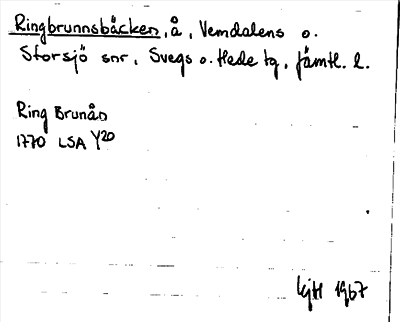 Ringbrunnsbäcken, å, Vemdalens o.
Storsjö snr, Svegs o. Hede tg, Jämtl. l.
Ring Brunån
1770 LSA Y20
1967